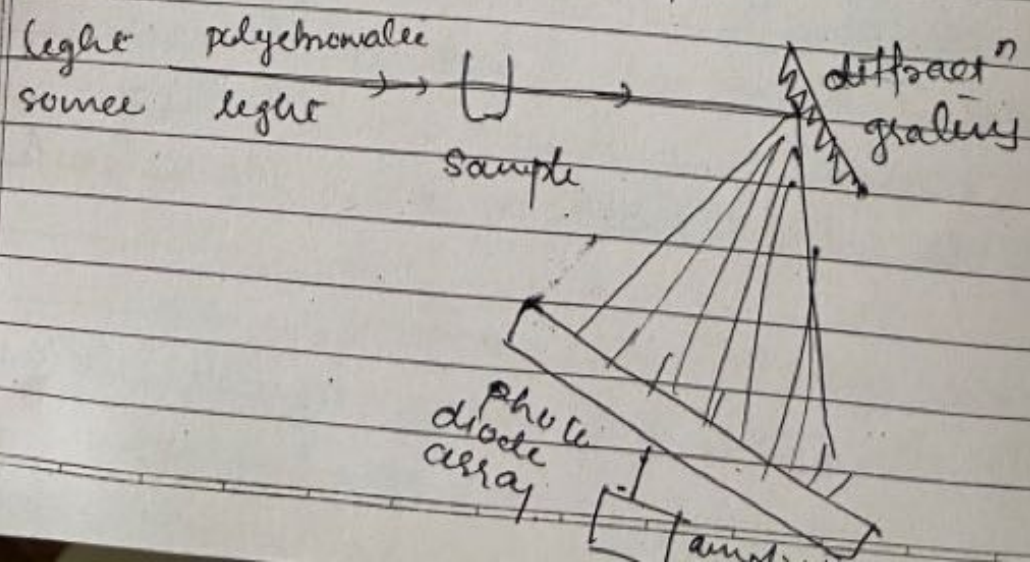 light polychromatic
source light
sample
diffractⁿ
grating
photo
diode
array